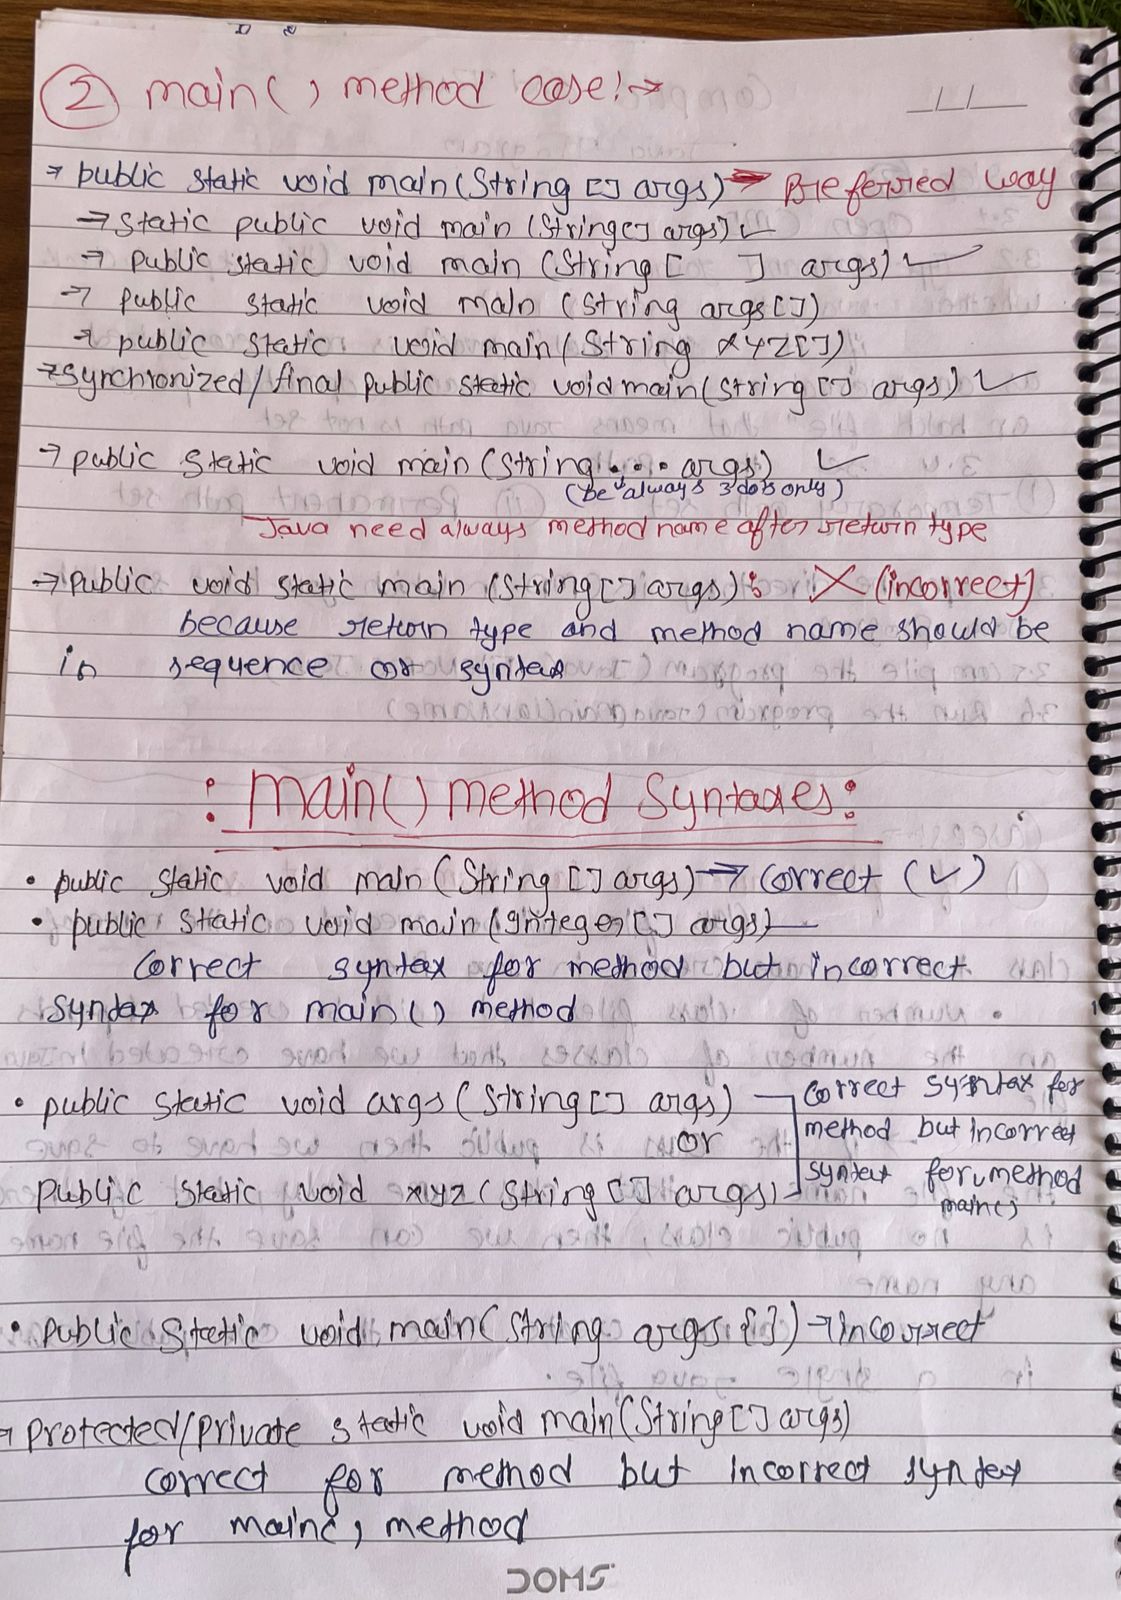 ② main() method case:→
→ public static void main(String [] args) → Preferred way
→ static public void main (String[] args) ✓
→ public static void main (String [ ] args) ✓
→ public static void main (String args[])
→ public static void main (String XYZ[])
→ synchronized/final public static void main(string [] args) ✓
→ public static void main (String... args) ✓
(be always 3 dots only)
Java need always method name after return type
→ public void static main (String[] args): X (incorrect)
because return type and method name should be
in sequence or syntax
: Main() method Syntaxes:
• public static void main (String [] args) → Correct (✓)
• public static void main (Integer[] args) —
Correct syntax for method but incorrect
syntax for main() method
• public static void args (String[] args)
or
public static void xyz (String [] args)
correct syntax for
method but incorrect
syntax for method
main()
• public static void main(String args{}) → incorrect
→ Protected/private static void main(String[] args)
correct for method but incorrect syntex
for main() method
DOMS